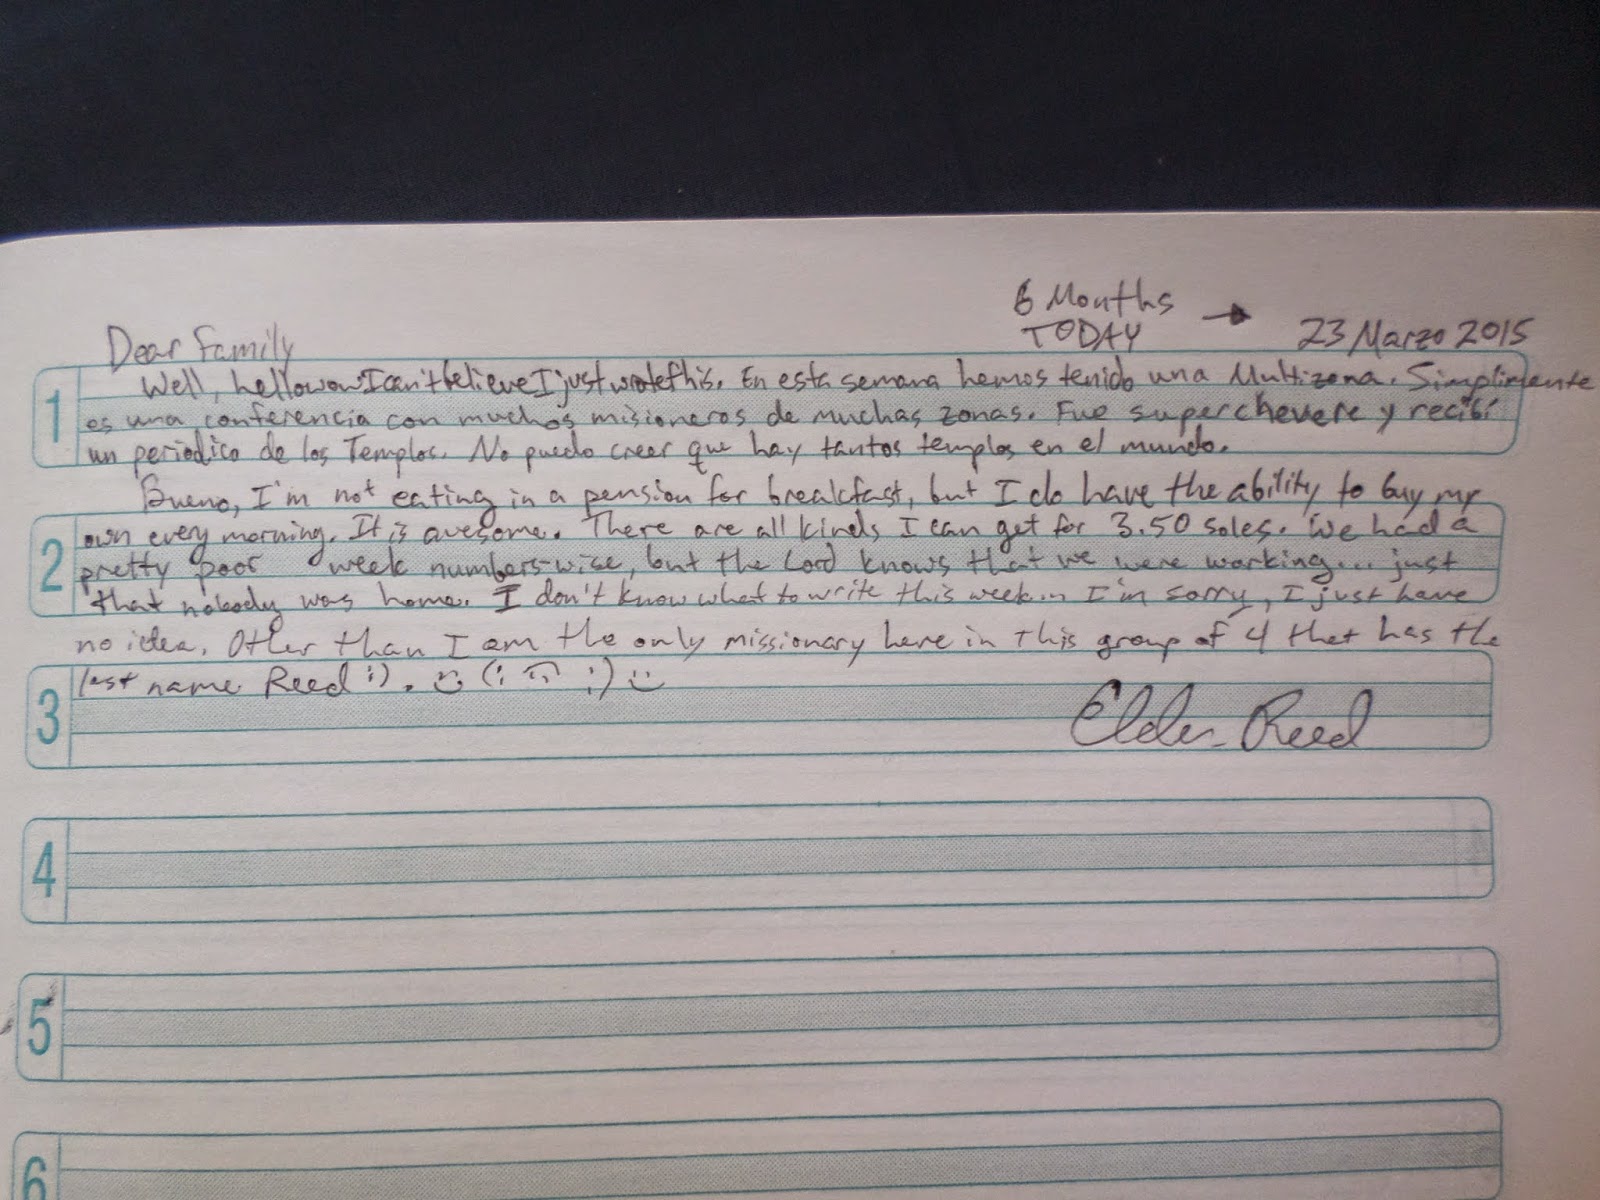 6 Months
TODAY → 23 Marzo 2015
Dear Family
1
Well, hellowowIcan'tbelieveIjustwrotethis. En esta semana hemos tenido una Multizona. Simplimente
es una conferencia con muchos misioneros de muchas zonas. Fue superchevere y recibí
un periodico de los Templos. No puedo creer que hay tantos templos en el mundo.
Bueno, I'm not eating in a pension for breakfast, but I do have the ability to buy my
2
own every morning. It is awesome. There are all kinds I can get for 3.50 soles. We had a
pretty poor week numbers-wise, but the Lord knows that we were working... just
that nobody was home. I don't know what to write this week... I'm sorry, I just have
no idea. Other than I am the only missionary here in this group of 4 that has the
3
last name Reed :). (: :)
Elder Reed
4
5
6